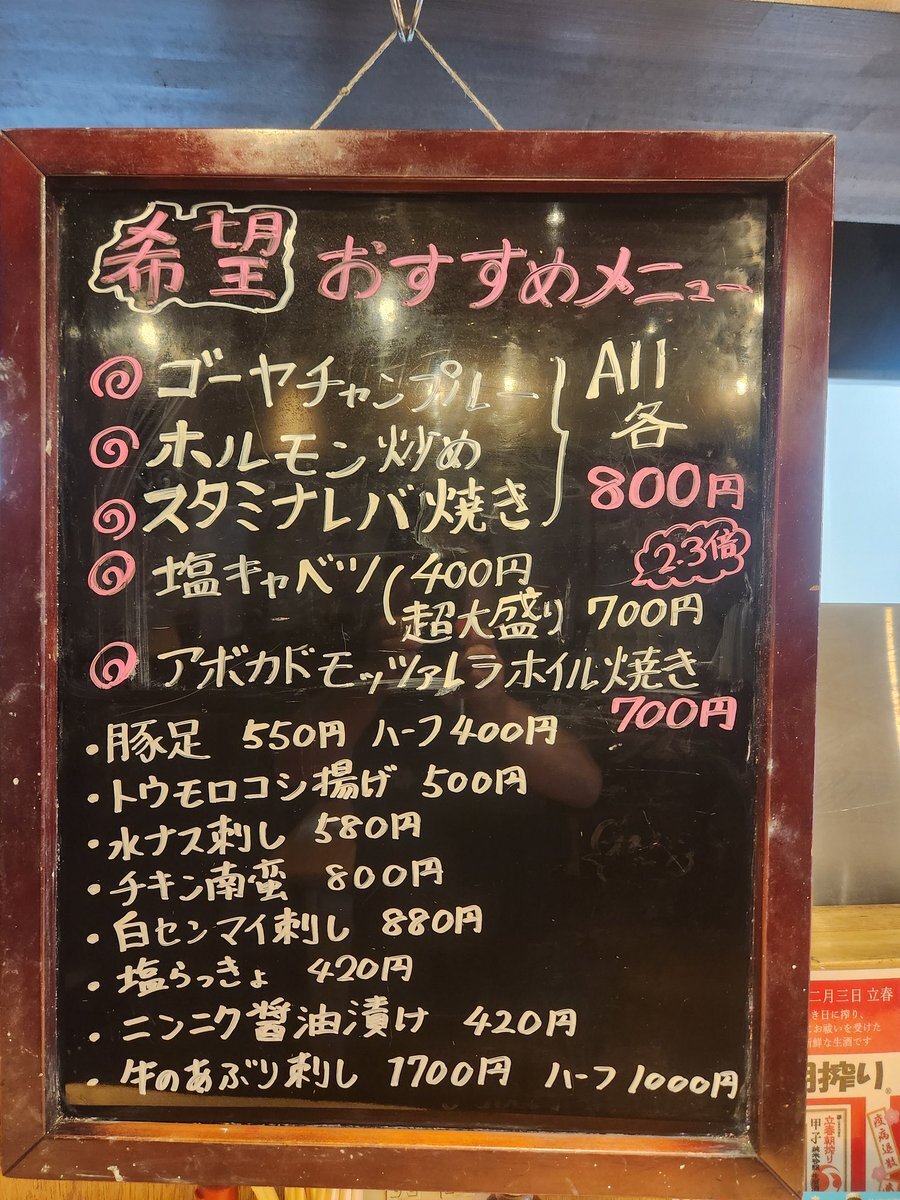 希望 おすすめメニュー
ゴーヤチャンプルー
ホルモン炒め
スタミナレバ焼き
All
各
800円
塩キャベツ 400円
2.3倍
超大盛り 700円
アボカドモッツァレラホイル焼き
700円
・豚足 550円 ハーフ400円
・トウモロコシ揚げ 500円
・水ナス刺し 580円
・チキン南蛮 800円
・白センマイ刺し 880円
・塩らっきょ 420円
・ニンニク醤油漬け 420円
・牛のあぶり刺し 1700円 ハーフ1000円
二月三日 立春
き日に搾り、
お祓いを受けた
新鮮な生酒です
朝搾り
立春朝搾り
甲子
疫病退散